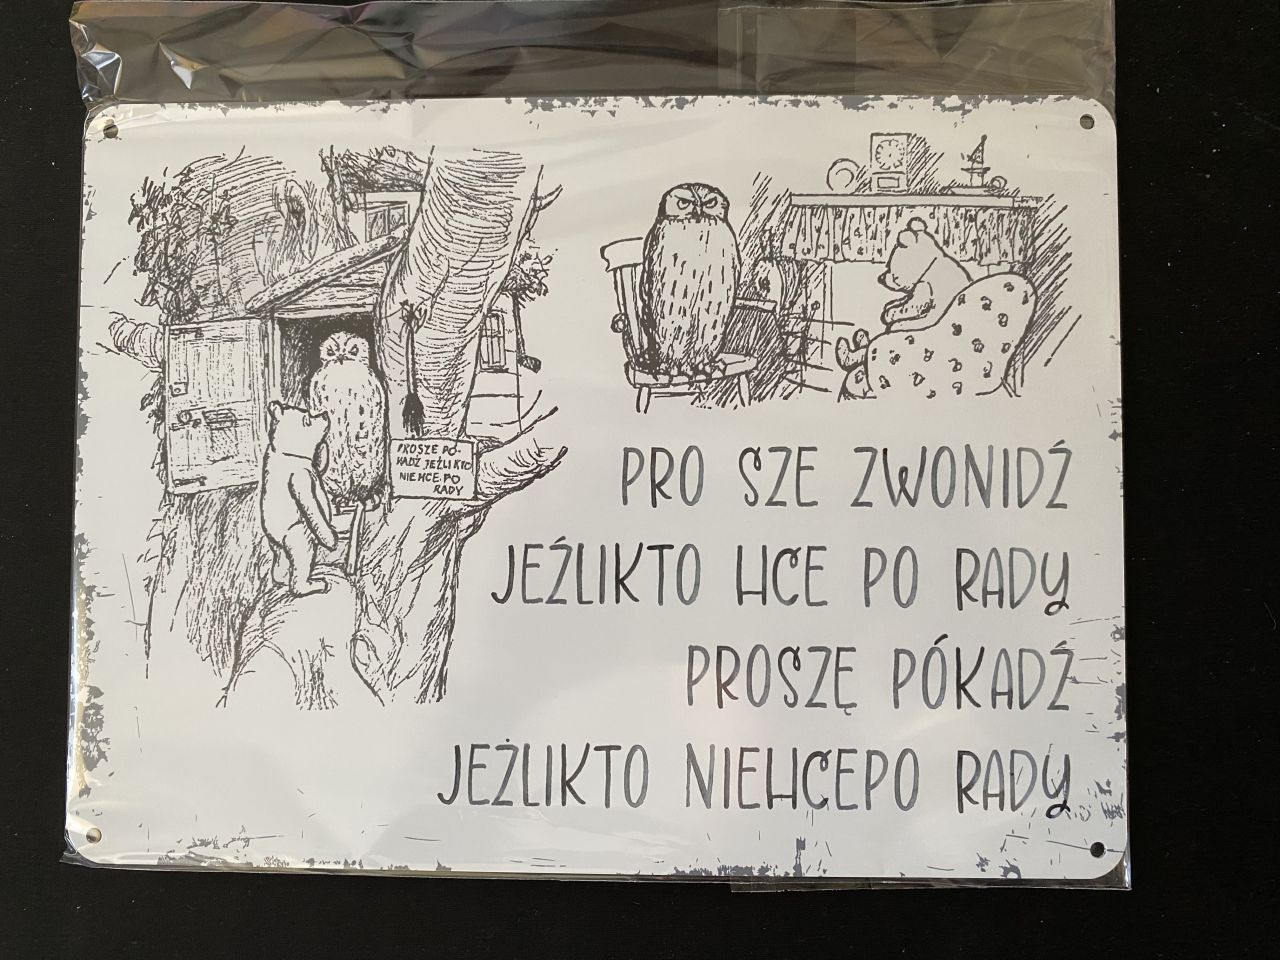 PROSZE PO-
KADŹ JEŹLIKTO
NIEHCE PO
RADY
PRO SZE ZWONIDŹ
JEŹLIKTO HCE PO RADY
PROSZĘ PÓKADŹ
JEŻLIKTO NIEHCEPO RADY